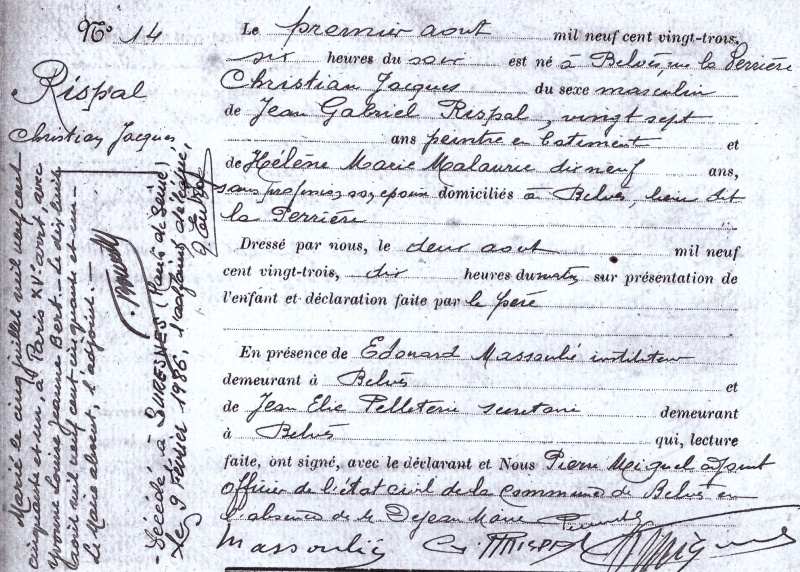 N° 14
Rispal
Christian Jacques
Marié le cinq juillet mil neuf cent
cinquante et un, à Paris XVe arrt, avec
Yvonne Louise Jeanne Bert. - Le dix
août mil neuf cent cinquante et un -
Le Maire absent, l'adjoint. -
- Décédé à SURESNES (Hauts de Seine)
le 9 Février 1986, l'adjoint délégué,
Le premier aout mil neuf cent vingt-trois,
six heures du soir est né à Belvès, la Perrière
Christian Jacques du sexe masculin
de Jean Gabriel Rispal, vingt sept
ans peintre en batiment et
de Hélène Marie Malaurie dix neuf ans,
sans profession, son épouse domiciliés à Belvès, lieu dit
la Perrière
Dressé par nous, le deux aout mil neuf
cent vingt-trois, dix heures du matin sur présentation de
l'enfant et déclaration faite par le père
En présence de Edouard Massoubié instituteur
demeurant à Belvès et
de Jean Elie Pelleterie secretaire demeurant
à Belvès qui, lecture
faite, ont signé, avec le déclarant et Nous Pierre Miquel adjoint
officier de l'état civil de la Commune de Belvès en
l'absence de Mr Dejean Maire
Massoubié G RISPAL Miquel